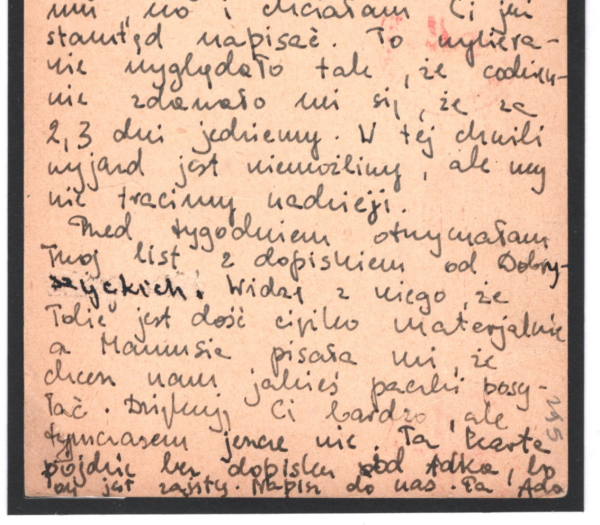 mu, no i chciałam Ci już
stamtąd napisać. To wybiera-
nie wyglądało tak, że codzien-
nie zdawało mi się, że za
2, 3 dni jedziemy. W tej chwili
wyjazd jest niemożliwy, ale my
nie tracimy nadzieji.
Przed tygodniem otrzymałam
Twój list z dopiskiem od Dobry-
szyckich. Widzę z niego, że
Tobie jest dość ciężko materjalnie
a Mamusia pisała mi, że
chcesz nam jakieś paczki posy-
łać. Dziękuję Ci bardzo, ale
tymczasem jeszcze nie. Ta karta
pójdzie bez dopisku od Adka, bo
on jest zajęty. Napisz do nas. Ta Ada
245